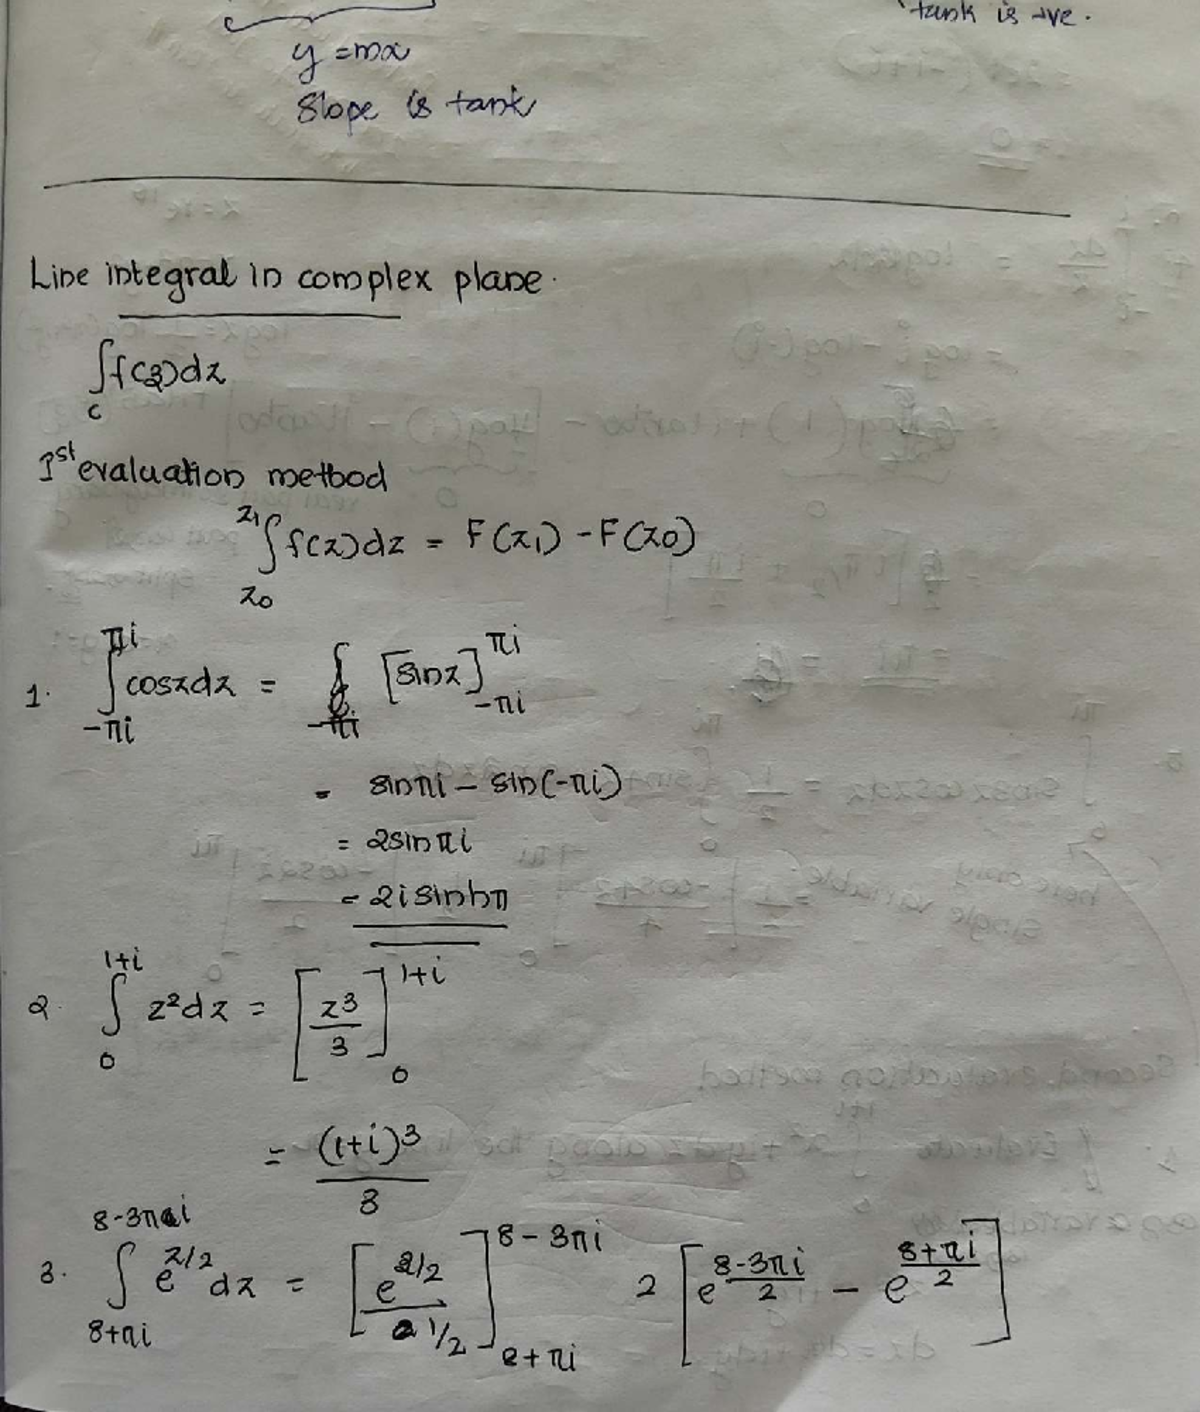 tank is +ve.
y = mx
Slope is tank
Line integral in complex plane.
∫f(z)dz
c
1st evaluation method
z1∫z0 f(z)dz = F(z1) - F(z0)
1. ∫ -πi to πi cosz dz = [sinz] πi -πi
= sinπi - sin(-πi)
= 2sinπi
= 2i sinhπ
2. ∫ 0 to 1+i z² dz = [z³/3] 1+i 0
= (1+i)³/3
3. ∫ 8+πi to 8-3πi e^z/2 dz = [e^z/2 / 1/2] 8-3πi 8+πi 2[e^(8-3πi)/2 - e^(8+πi)/2]